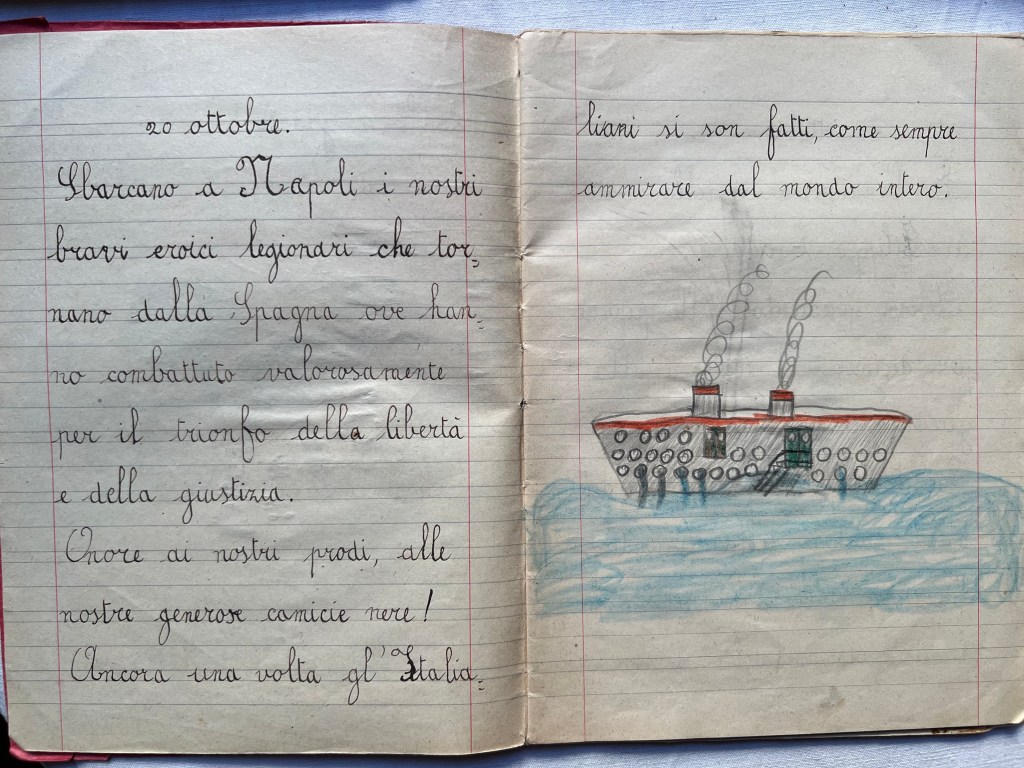 20 ottobre.
Sbarcano a Napoli i nostri
bravi eroici legionari che tor=
nano dalla Spagna ove han=
no combattuto valorosamente
per il trionfo della libertà
e della giustizia.
Onore ai nostri prodi, alle
nostre generose camicie nere!
Ancora una volta gl'Italia=
liani si son fatti, come sempre
ammirare dal mondo intero.